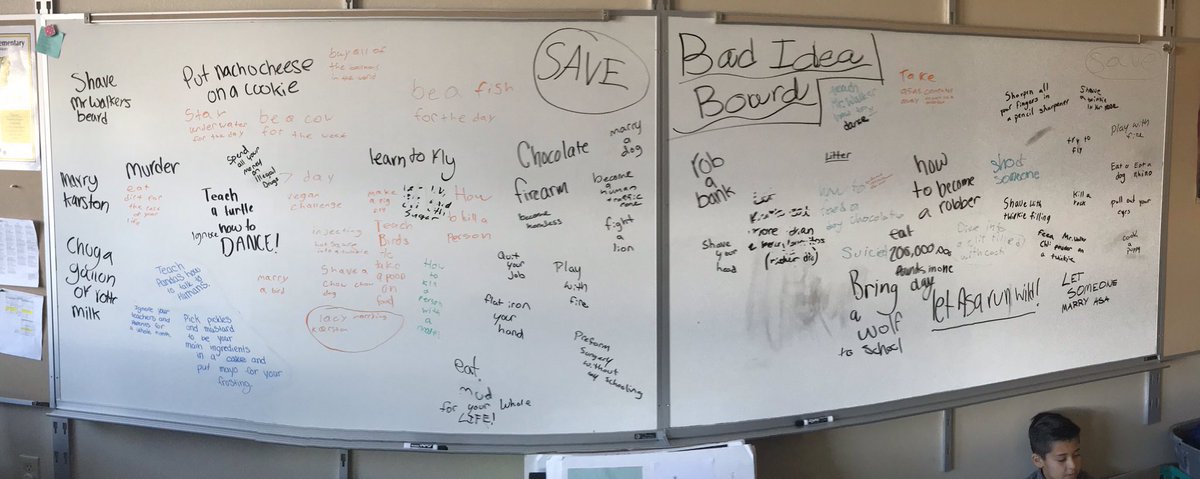 Shave
Mr Walkers
beard
Put nacho cheese
on a cookie
buy all of
the
in the world
Stay
underwater
for the day
be a cow
for the week
be a fish
for the day
SAVE
murder
eat
dirt for
the rest
of your
life
spend
all your
money
on
illegal
Drugs
7 day
vegan
challenge
learn to fly
Chocolate
firearm
marry
a
dog
marry
karston
Teach
a turtle
how to
DANCE!
Ignore
make
a pig
fly
How
to kill a
Person
become
homeless
become
a
human
fight
a
lion
Teach
Birds
to
take
a poop
on
food
injecting
Chug a
gallon
of rottn
milk
Teach
Pandas how
to talk to
Humans.
marry
a bird
Shave a
chow chow
dog
How
to
kill
a
Person
with
a
Quit
your
job
Play
with
fire
Ignore your
teachers and
parents for
a whole
Pick pickles
and mustard
to be your
main ingredients
in a cookie and
put mayo for your
frosting.
lacy marrying
karston
flat iron
your
hand
Preform
surgery
without
any schooling
eat
mud
for your whole
LIFE!
Bad Idea
Board
teach
Mr Walker
how to
dance
Take
asas
away
Sharpin all
your fingers in
a pencil sharpener
Shave
a
Save
rob
a
bank
Litter
how
to become
a robber
shoot
someone
try to
fly
Play with
fire
Eat a
dog
Eat a
Rhino
Shave with
twinkie filling
Kill a
pull out your
eyes
more than
Shave
your
head
Suicide
eat
200,000,000
in one
day
Dive into
a pit filled
with cash
Feed Mr. Walker
on
a twinkie
cook
a
puppy
Bring
a
wolf
to School
let Asa run wild!
LET
SOMEONE
MARRY ASA